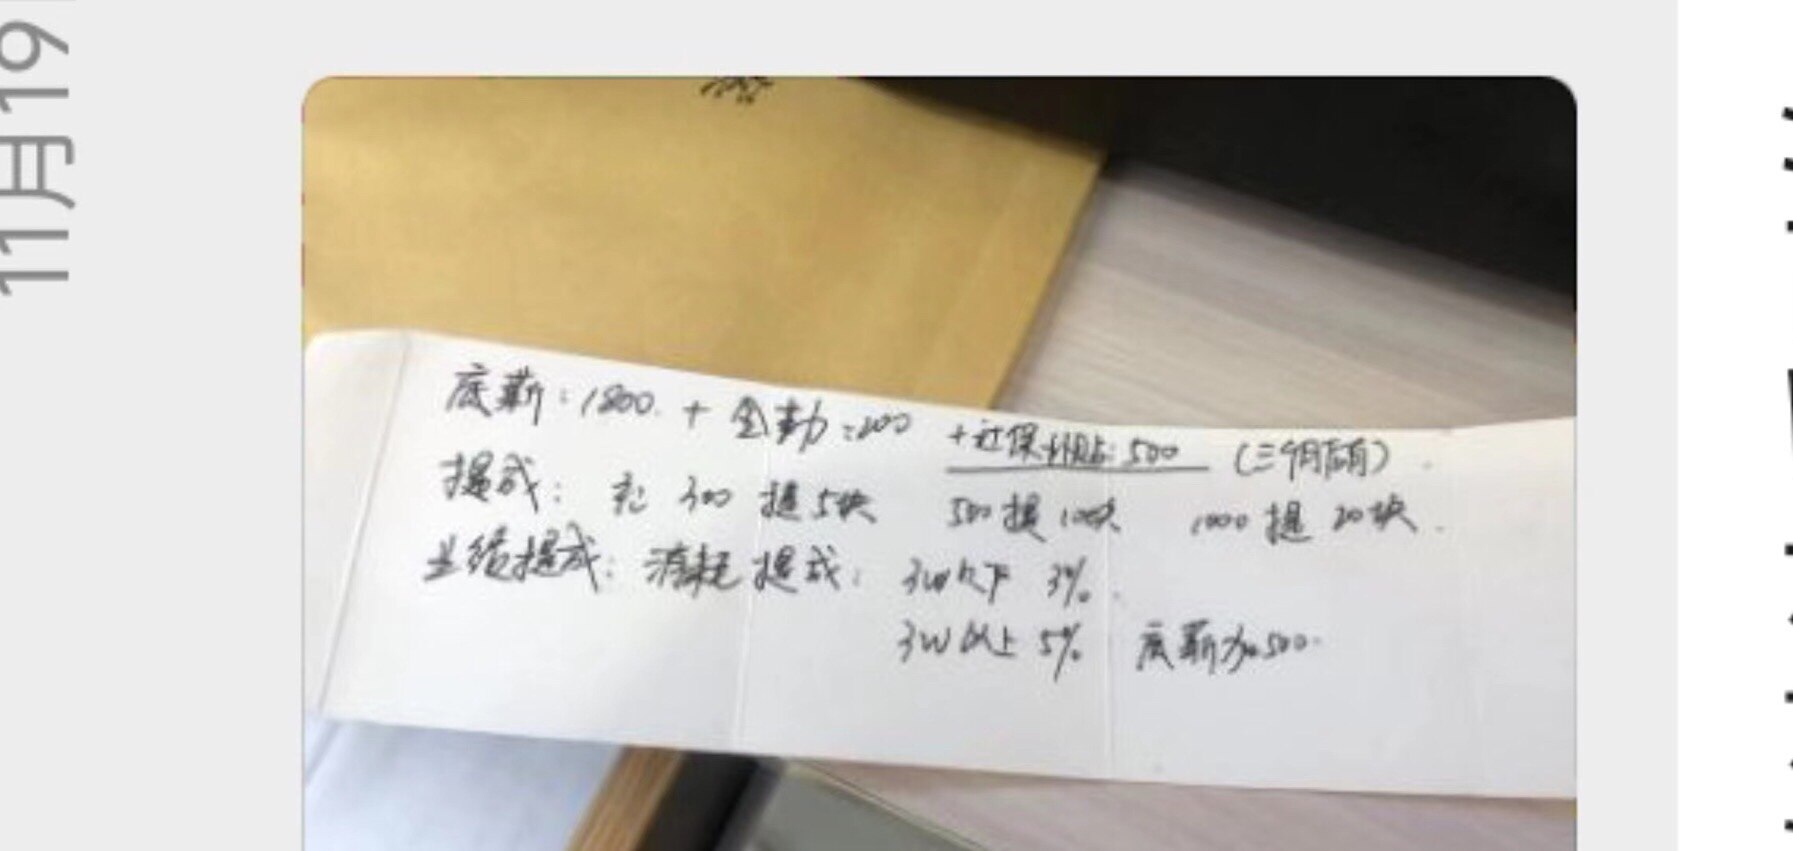 11月19
底薪：1800 + 全勤：200 +社保补贴：500 （三个月后有）.
提成： 充 300 提5块 500提10块 1000提20块.
业绩提成：消耗提成： 3W以下 3%.
3W以上 5% 底薪加500.